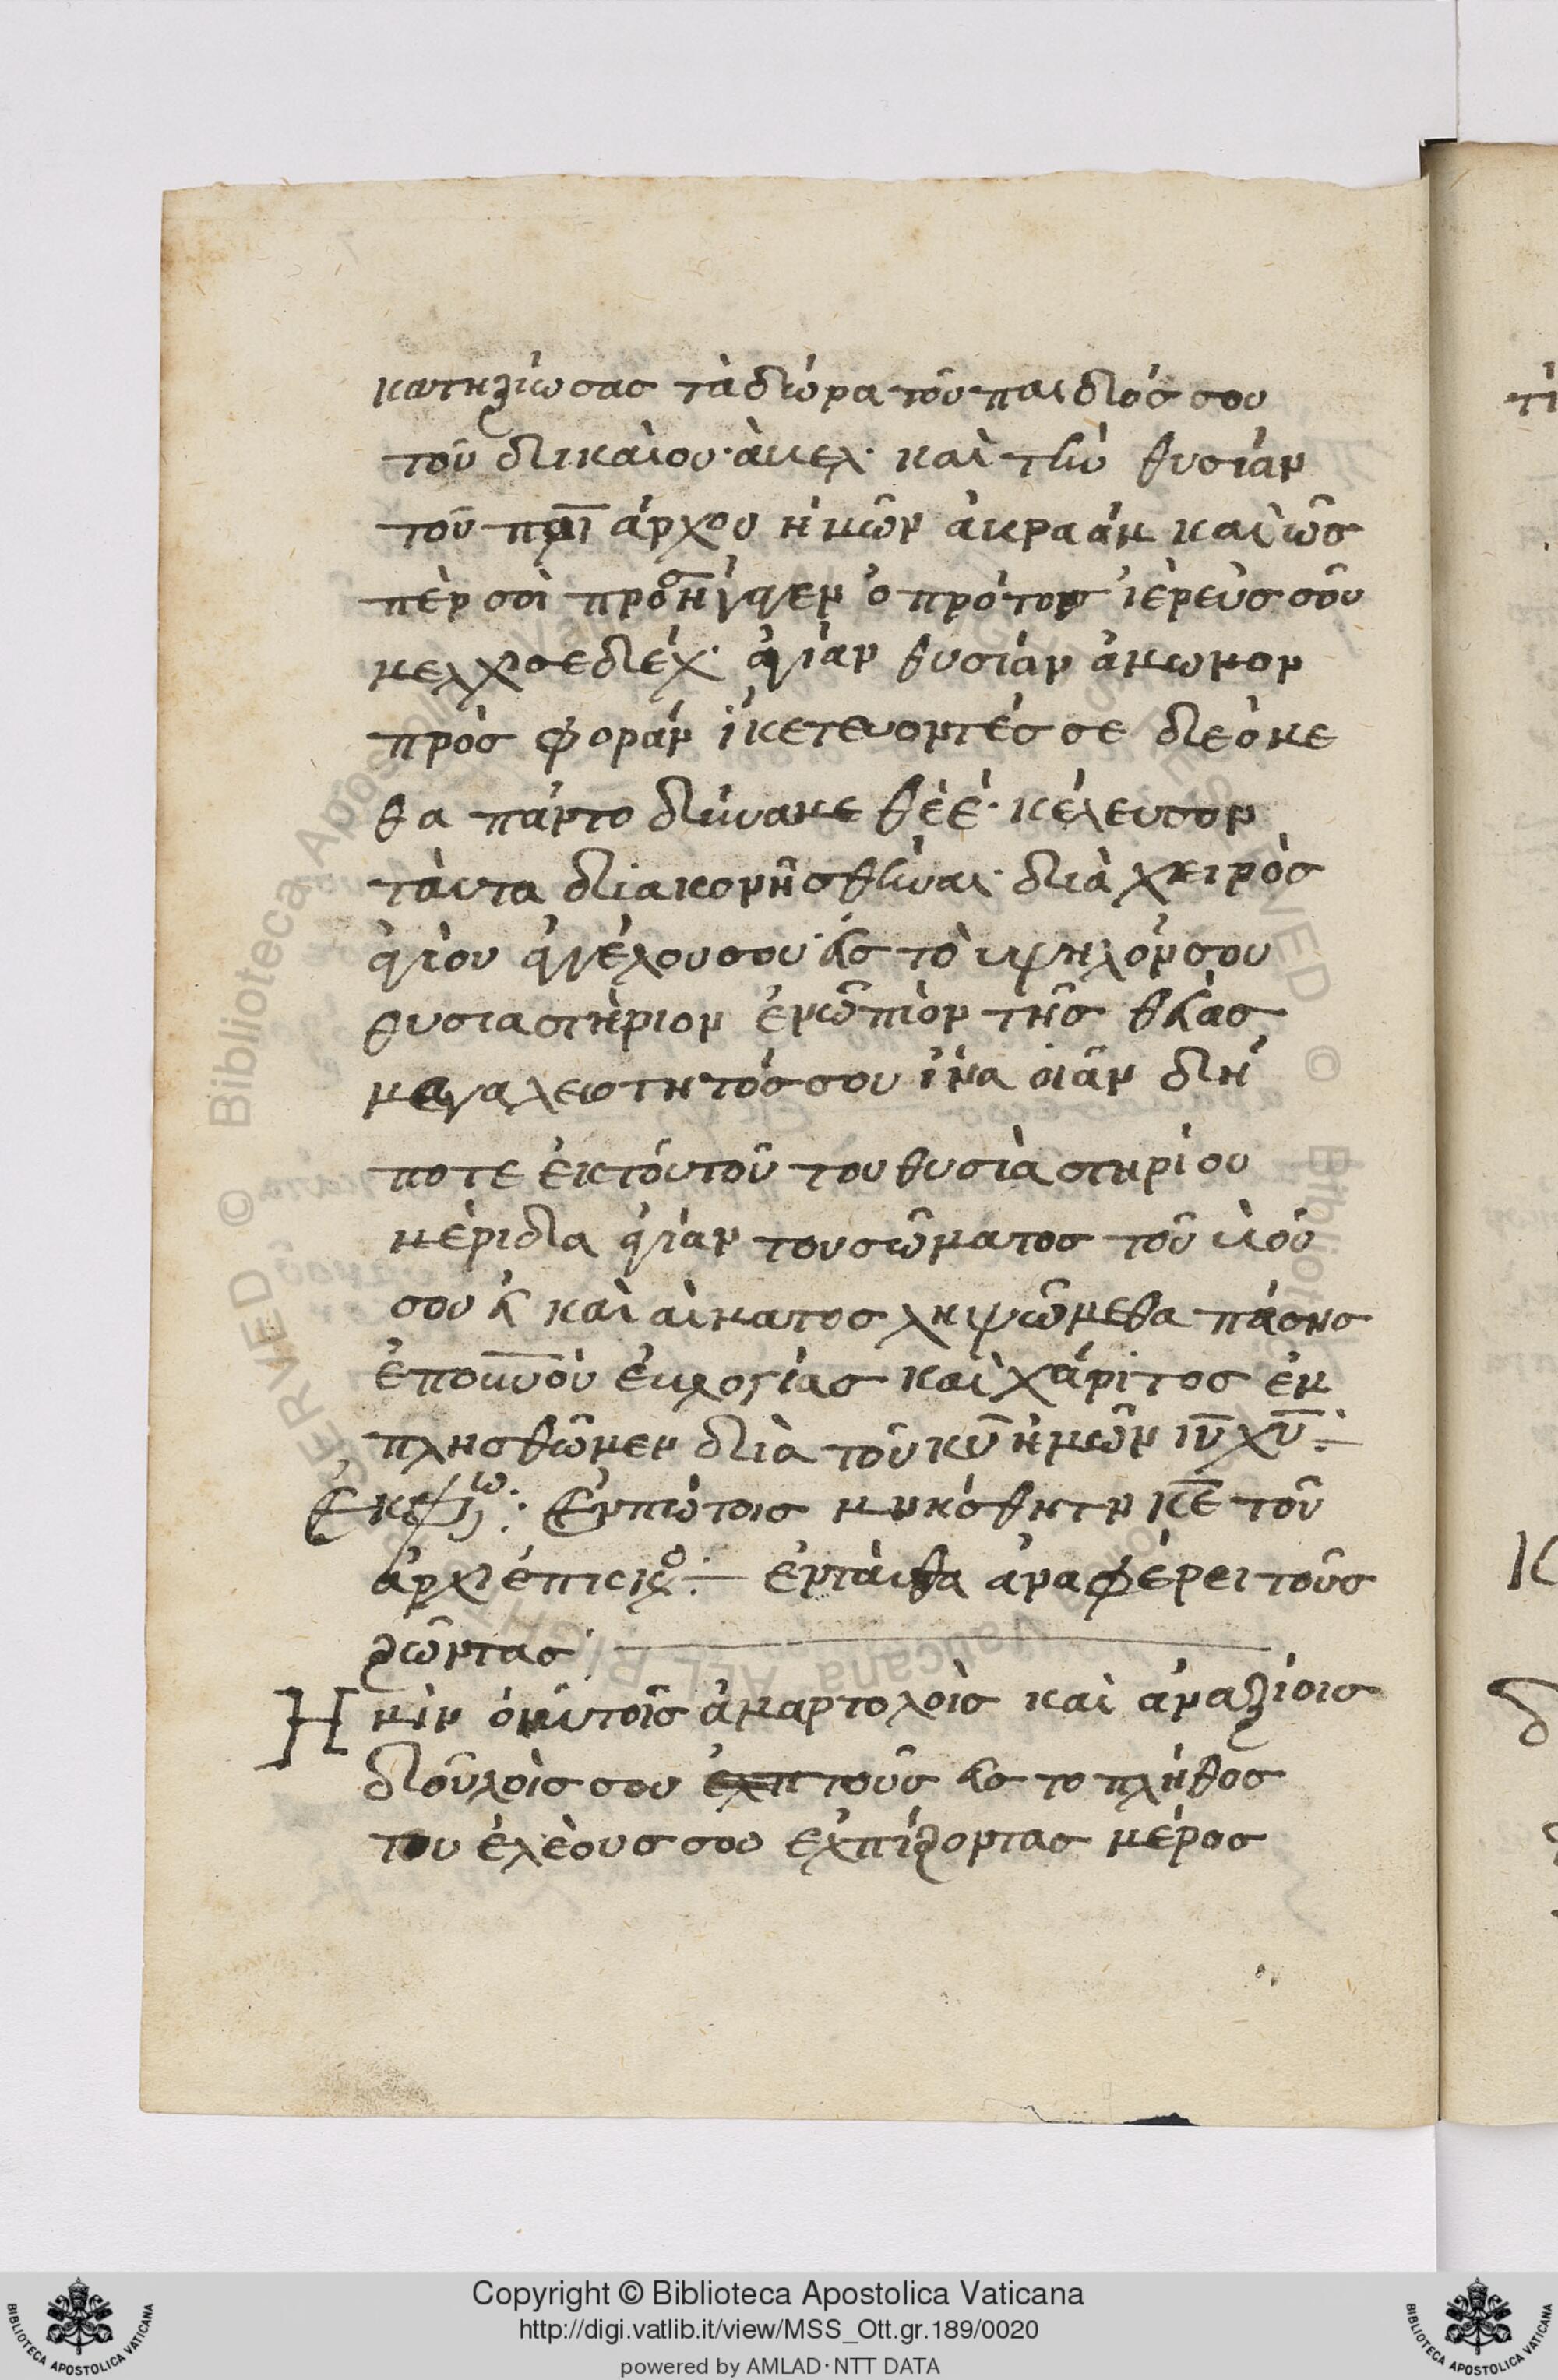 κατηξίωσας τὰ δώρα τοῦ παιδιός σου
τοῦ δικαίου· ἀμελ· καὶ τὴν θυσίαν
τοῦ πρι ἀρχου ἡμῶν ἀκραάμ καὶ ὡς
πέρ σοὶ προσήγαγεν ὁ πρότος ἱερεύς σου
μελχσεδιέχ· ἁγίαν θυσίαν ἄμωμον
πρὸς φοράν ἱκετευοντές σε δεόμε
θα πάντο δύναμε θεέ· κέλευσον
τάυτα διακομῆσθῆναι· διὰ χειρὸς
ἁγίου ἀγέλου σου· εἰς τὸ υψηλόν σου
θυσιαστήριον ἐνῶπιόν τῆς θείας
μεγαλειοτητός σου ἵνα οἱἂν δή
ποτε ἐκτόυτοῦ του θυσιὰστηρίου
μέριδα ἁγίαν του σῶματος τοῦ υἱοῦ
σου καὶ αἵματος ληψῶμεθα πάσης
ἐπουνοὺ ἐυλογίας καὶ χάριτος ἐμ
πλησθῶμεν διὰ τοῦ κυ ἡμῶν ιυ χυ
Ἐκφω: Ἐνπρώτοις μνήσθητη κε τοῦ
ἀρχιέπισκο: ἐνταύθα ἀναφέρει τοῦς
ζῶντας
Ημὶν ὁμύτοῖς ἁμαρτολοὶς καὶ ἀναξίοις
δούλοὶς σου τοῦς εἰς το πλήθος
του ἐλὲους σου ἐλπίζοντας μέρος
Copyright © Biblioteca Apostolica Vaticana
http://digi.vatlib.it/view/MSS_Ott.gr.189/0020
powered by AMLAD·NTT DATA